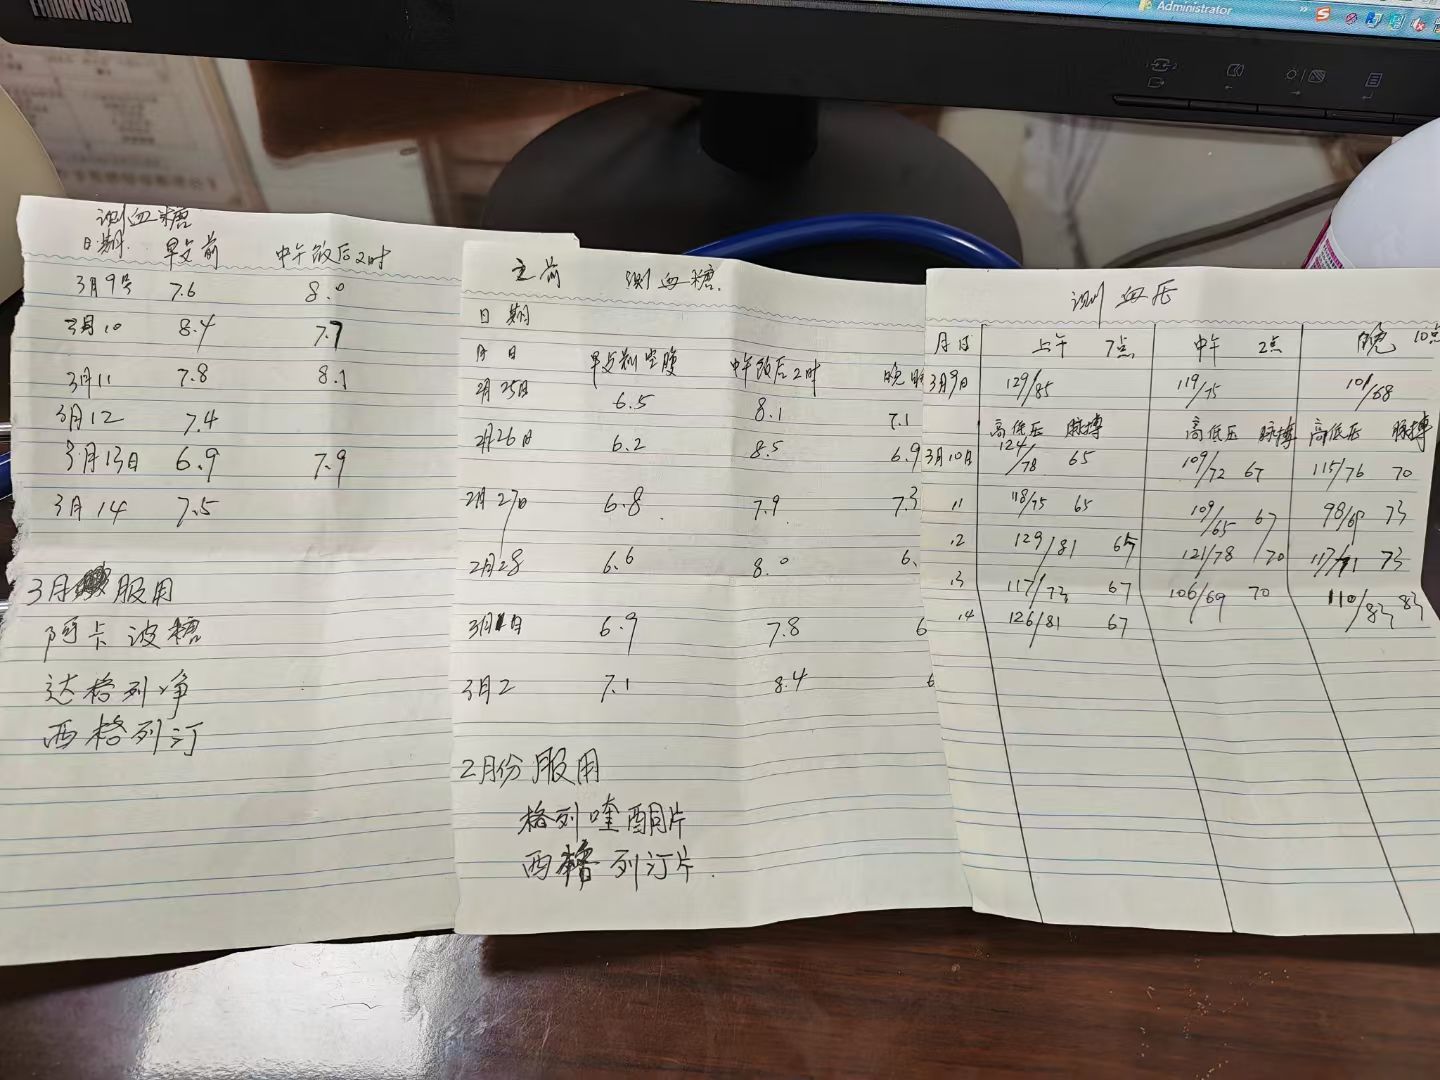 THINKVISION
Administrator
测血糖
日期 早点前 中午饭后2时
3月9号 7.6 8.0
3月10 8.4 7.7
3月11 7.8 8.1
3月12 7.4
3月13日 6.9 7.9
3月14 7.5
3月 服用
阿卡波糖
达格列净
西格列汀
之前 测血糖
日期
月日 早点前空腹 中午饭后2时 晚
2月25日 6.5 8.1 7.1
2月26日 6.2 8.5 6.9
2月27日 6.8 7.9 7.3
2月28 6.6 8.0 6.
3月1日 6.9 7.8 6
3月2 7.1 8.4 6
2月份服用
格列喹酮片
西格列汀片
测血压
月日 上午 7点 中午 2点 晚 10点
3月9日 129/85 119/75 101/68
高低压 脉搏 高低压 脉搏 高低压 脉搏
3月10日 124/78 65 109/72 67 115/76 70
11 118/75 65 109/65 67 98/69 73
12 129/81 65 121/78 70 117/71 73
13 117/73 67 106/69 70 110/83 83
14 126/81 67